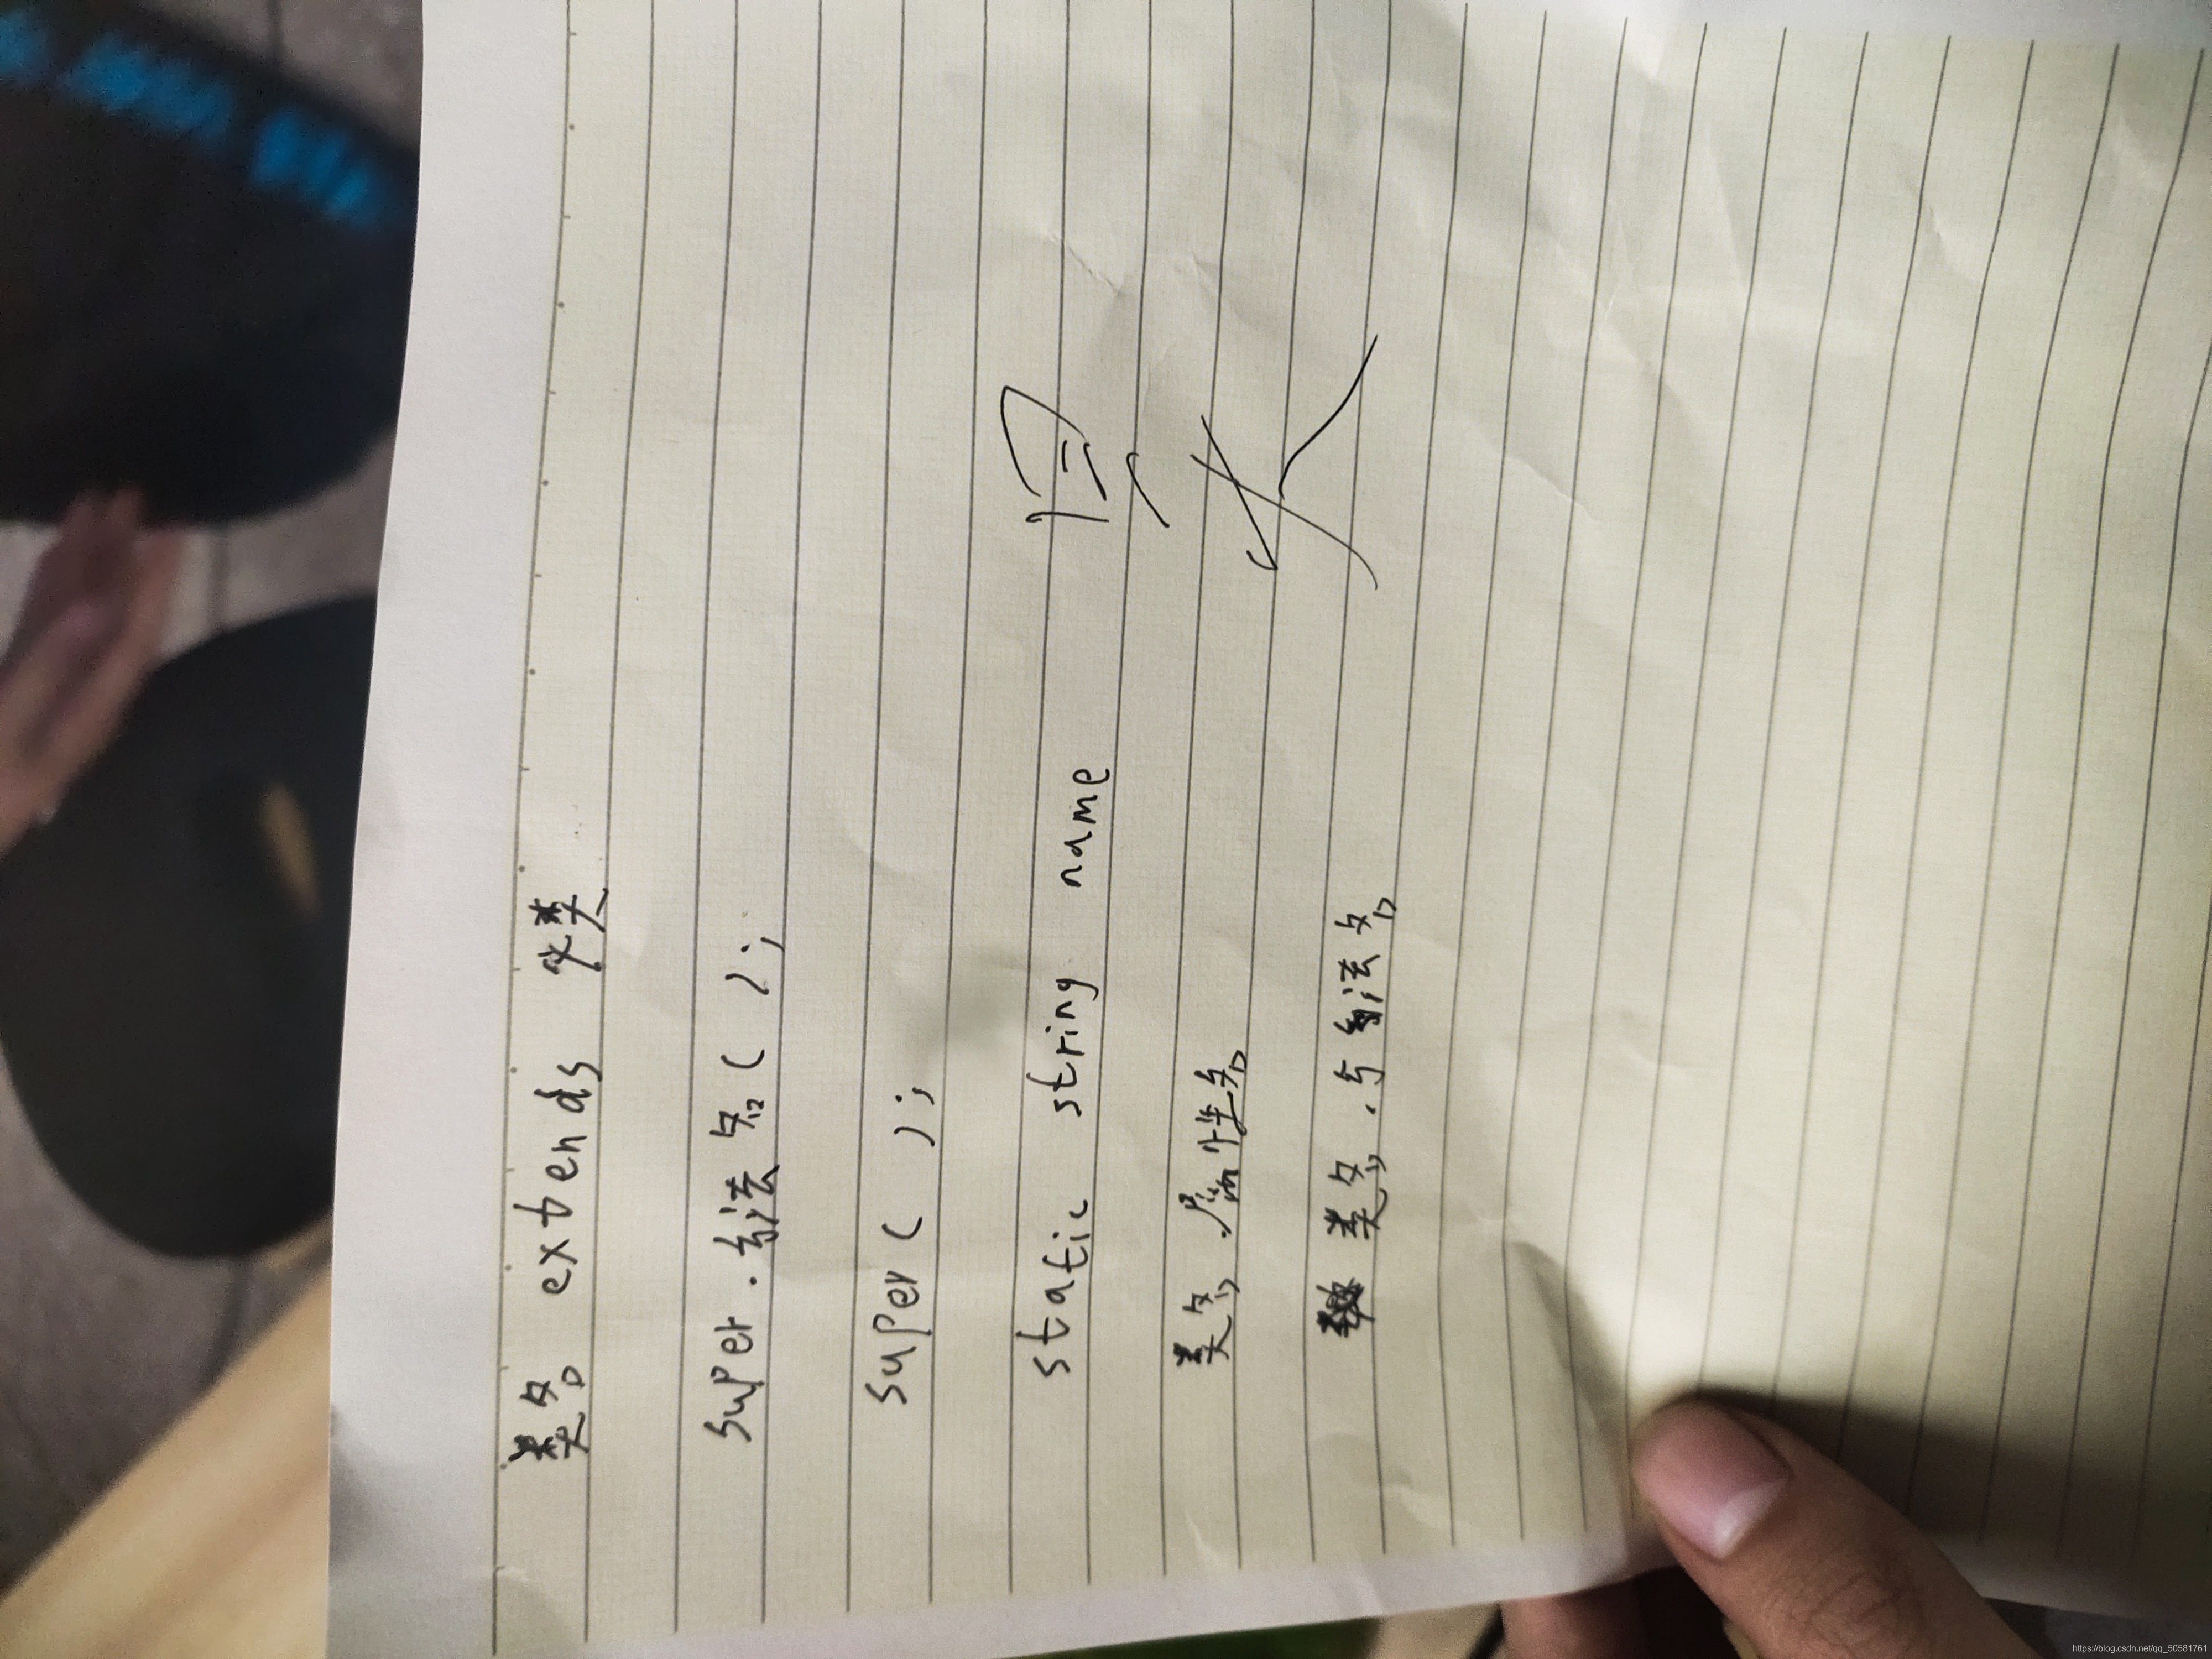 类名 extends 父类
super.方法名();
super();
static string name
类名.属性名
类名.方法名
https://blog.csdn.net/qq_50581761